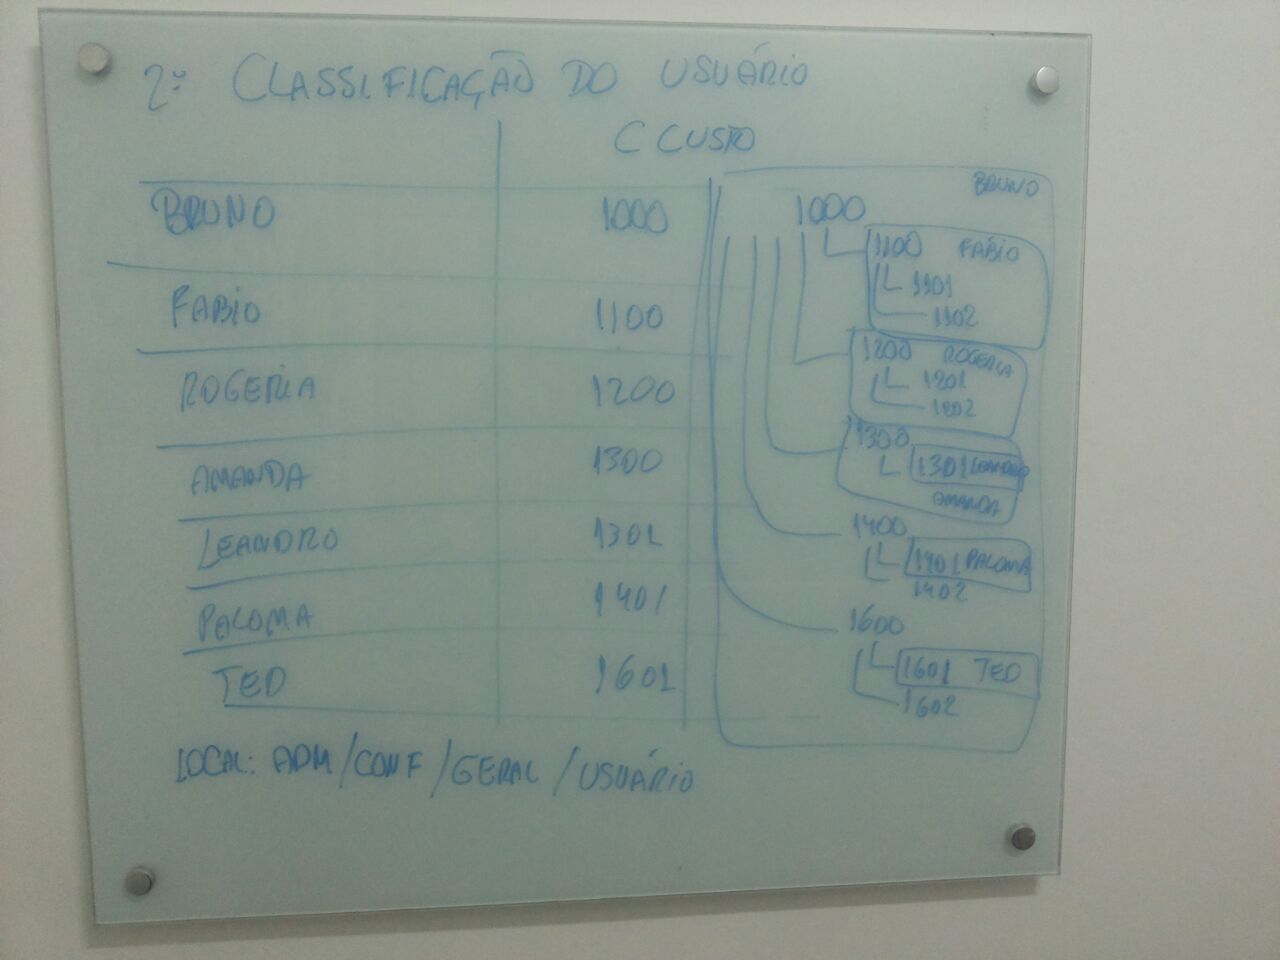 2º CLASSIFICAÇÃO DO USUÁRIO
C CUSTO
BRUNO 1000
FABIO 1100
ROGERIA 1200
AMANDA 1300
LEANDRO 1301
PALOMA 1401
TED 1601
BRUNO
1000
1100 FÁBIO
1101
1102
1200 ROGERIA
1201
1202
1300
1301 LEANDRO
AMANDA
1400
1401 PALOMA
1402
1600
1601 TED
1602
LOCAL: ADM/CONF/GERAL/USUÁRIO